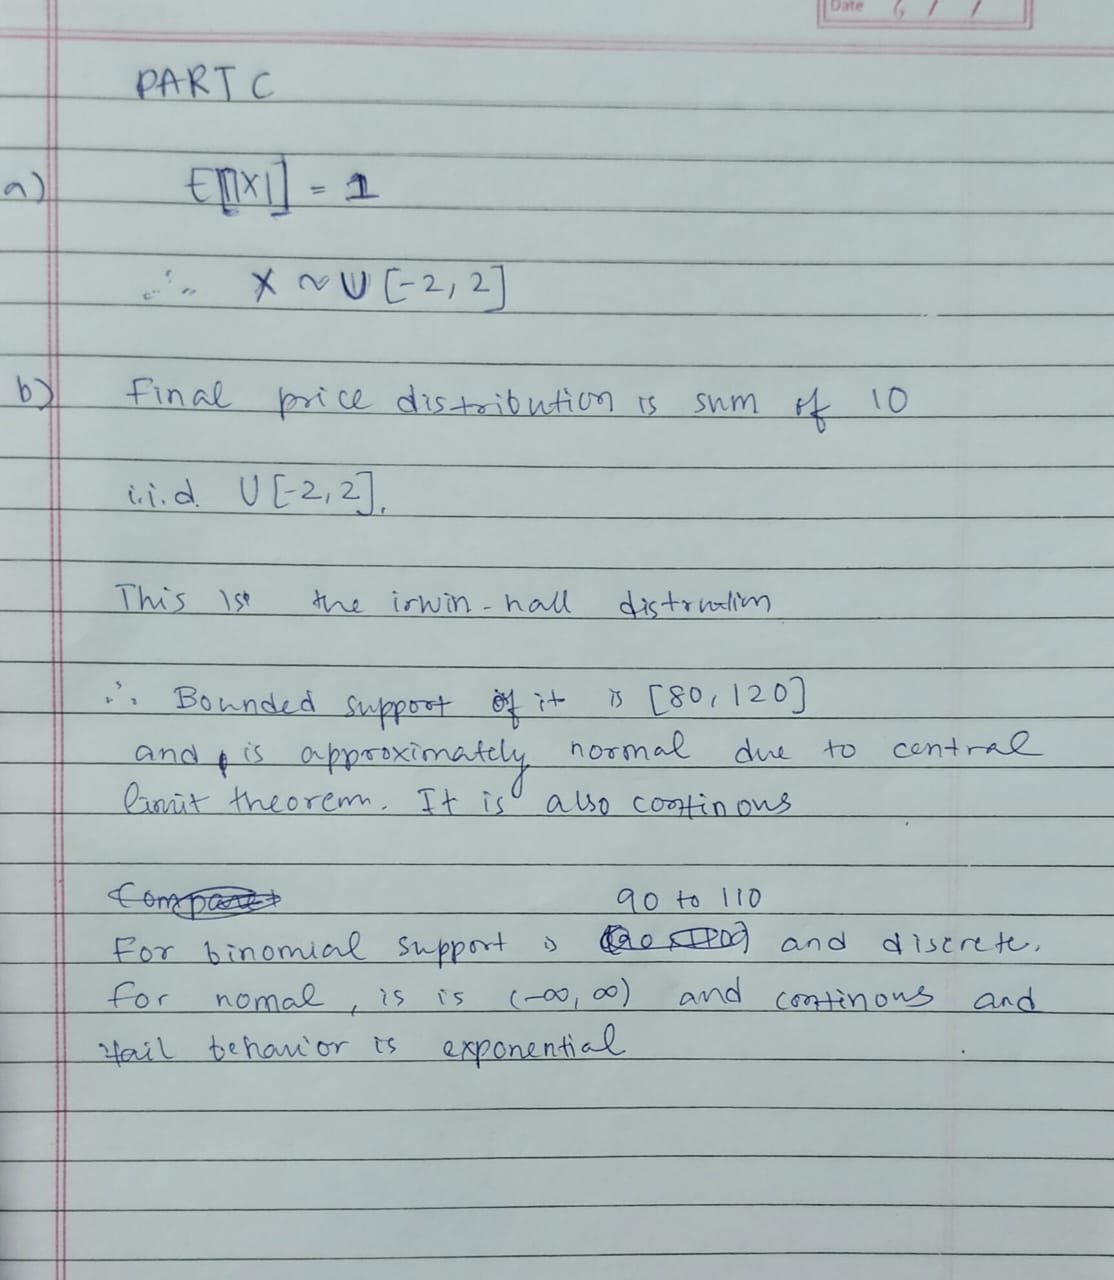 Date
PART C
a) E[|X|] = 1
∴ X ~ U [-2, 2]
b) Final price distribution is sum of 10
i.i.d. U [-2, 2].
This is the irwin-hall
∴ Bounded support of it is [80, 120]
and is approximately normal due to central
limit theorem. It is also continous
90 to 110
For binomial support is and discrete.
for nomal, is is (-∞, ∞) and continous and
tail behavior is exponential